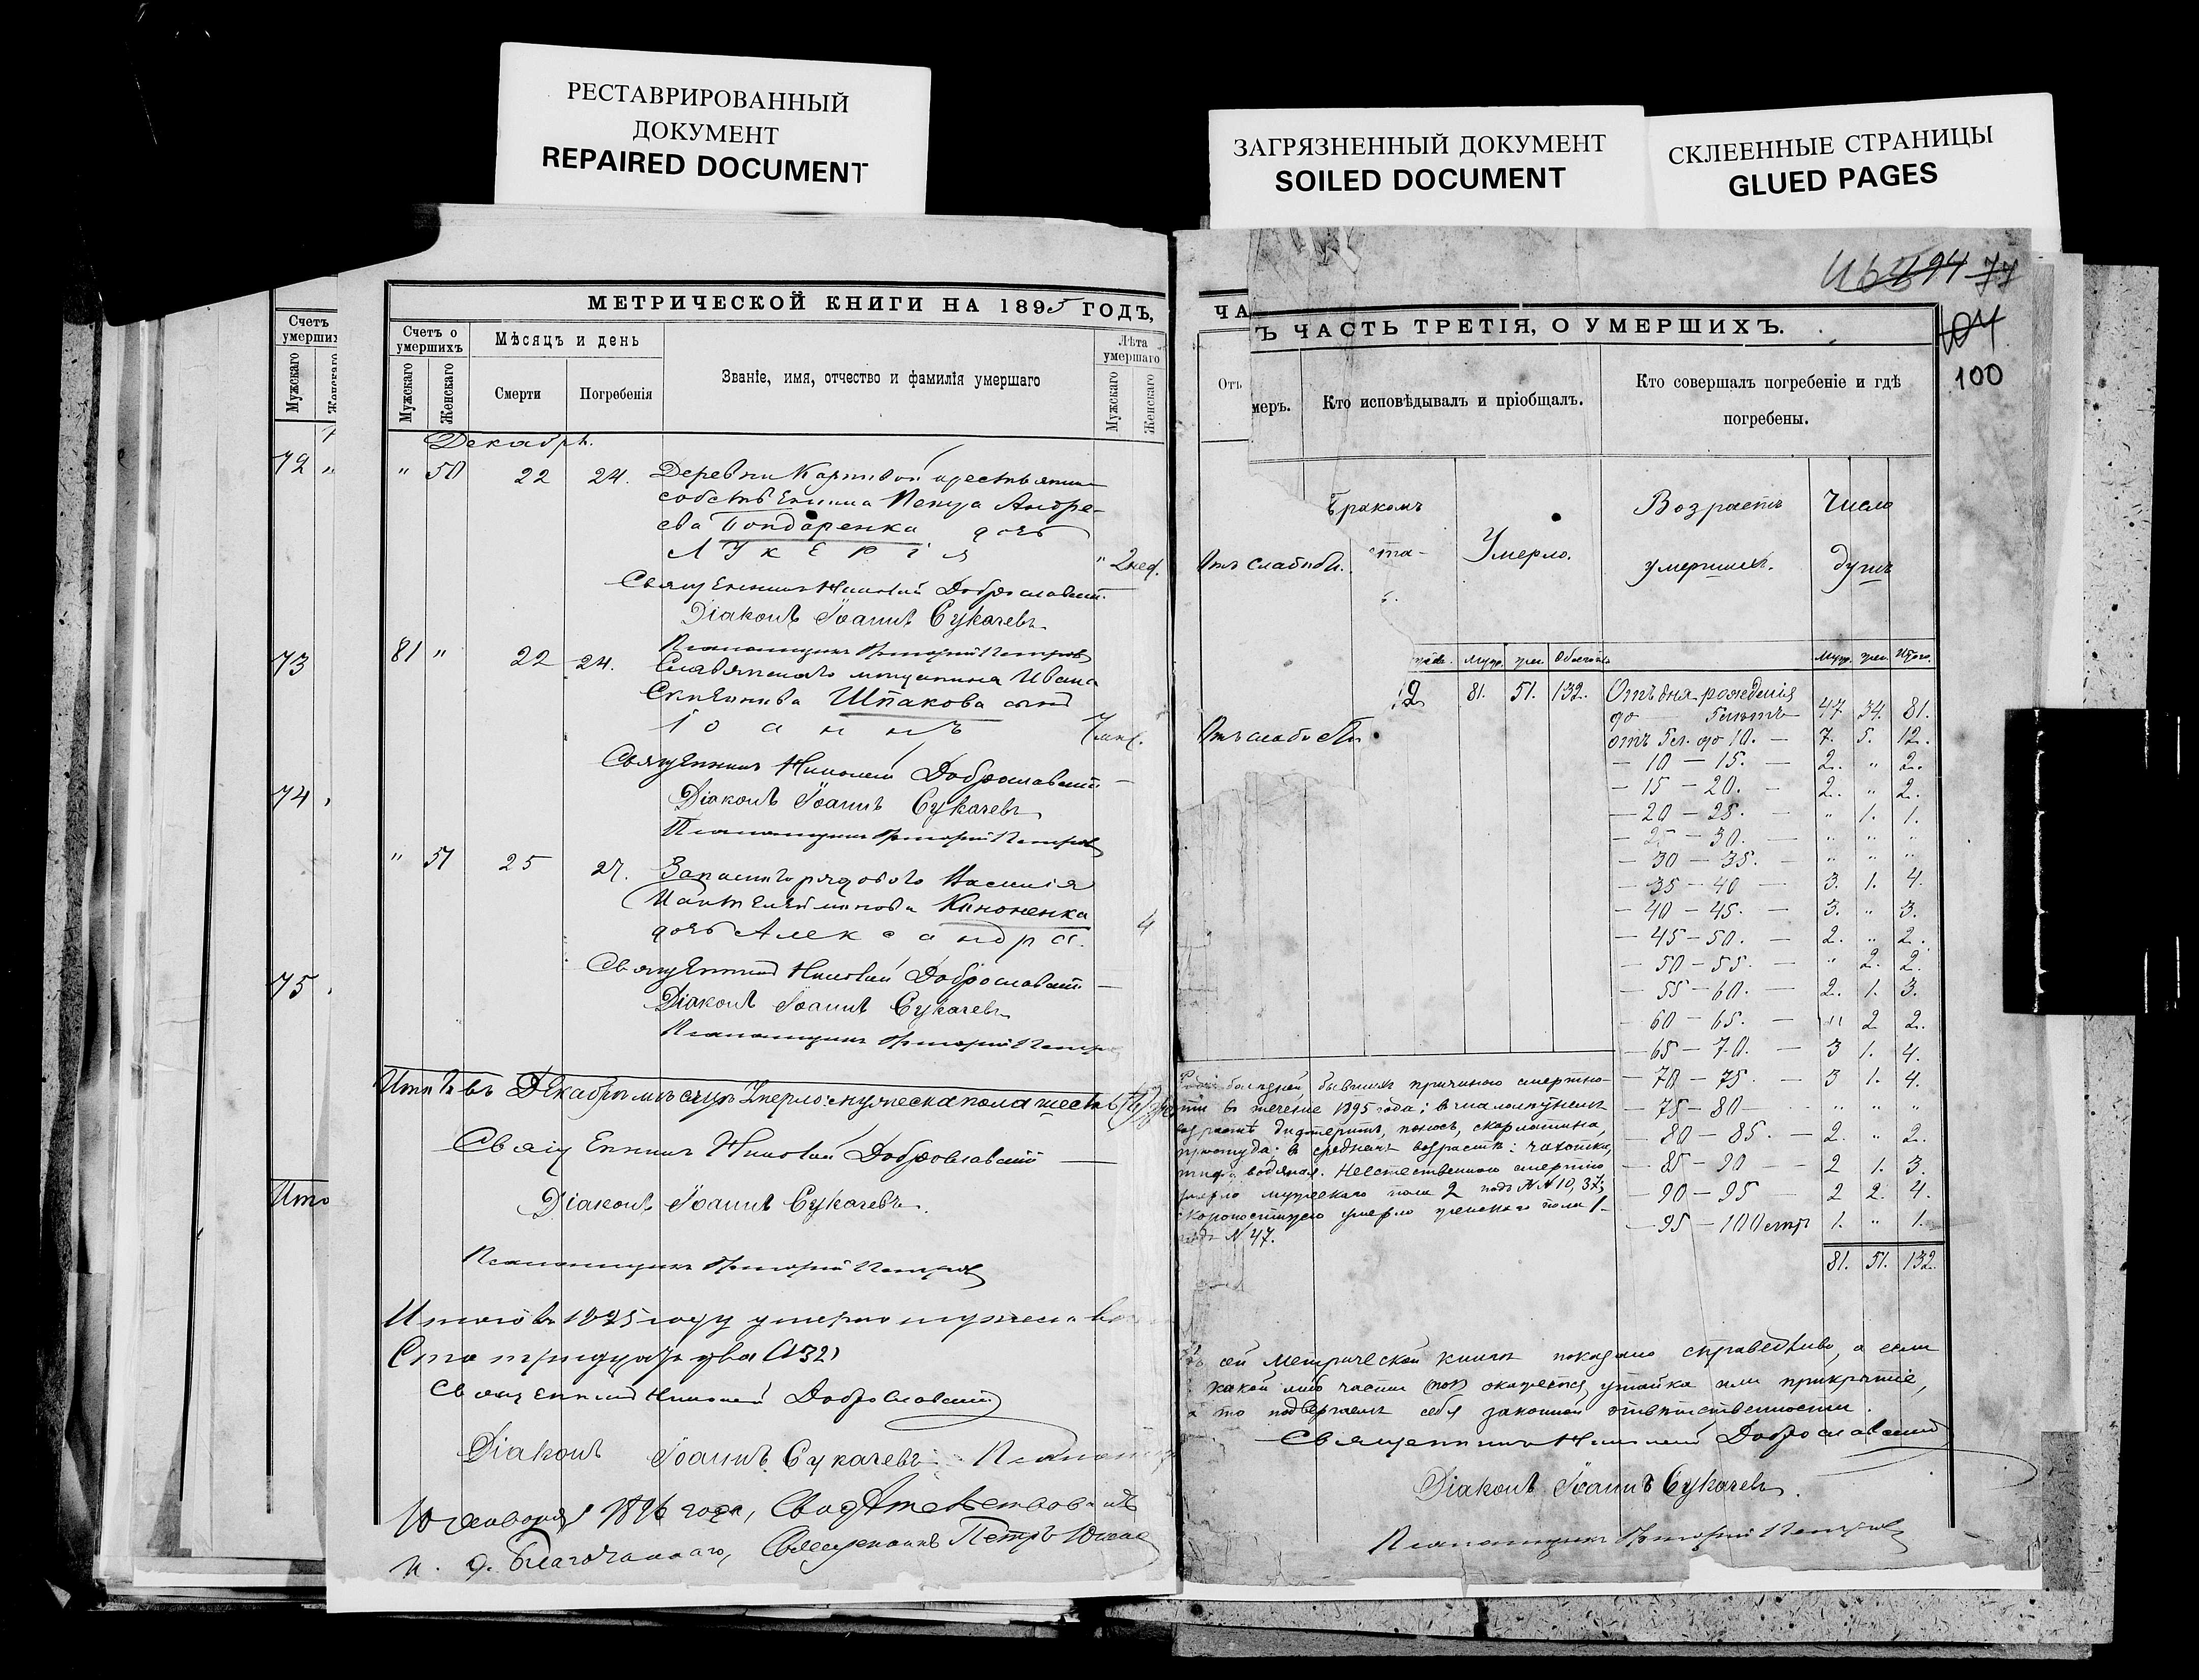 РЕСТАВРИРОВАННЫЙ
ДОКУМЕНТ
REPAIRED DOCUMENT
ЗАГРЯЗНЕННЫЙ ДОКУМЕНТ
SOILED DOCUMENT
СКЛЕЕННЫЕ СТРАНИЦЫ
GLUED PAGES
Счетъ
умерших
Мужскаго
72 "
73
74
75
Ито
МЕТРИЧЕСКОЙ КНИГИ НА 1895 ГОДЪ,
Счетъ о умершихъ
Мѣсяцъ и день
Званіе, имя, отчество и фамилія умершаго
Лѣта умершаго
Мужскаго Женскаго Смерти Погребенія Мужскаго Женскаго
Декабрь.
" 50 22 24. Деревни крестьянина
собственника Андре-
ева Бондаренка дочь
Лукерія " 2 нед.
Священникъ Николай Доброславскій
Діаконъ Іоаннъ Сукачевъ
Псаломщикъ Григорій Петровъ
81 " 22 24. Славянскаго мещанина Ивана
Шпакова сынъ
Іоаннъ
Священникъ Николай Доброславскій
Діаконъ Іоаннъ Сукачевъ
Псаломщикъ Григорій Петровъ
" 51 25 27. Запаснаго рядоваго Василія
Пантелеимонова Кононенка
дочь Александра. 4
Священникъ Николай Доброславскій
Діаконъ Іоаннъ Сукачевъ
Псаломщикъ Григорій Петров
Итого въ Декабрѣ мѣсяцѣ умерло: мужеска пола шесть
Священникъ Николай Доброславскій
Діаконъ Іоаннъ Сукачевъ.
Псаломщикъ Григорій Петровъ
Итого въ 1895 году умерло мужеска
Сто тридцать два (132)
Священникъ Николай Доброславскій
Діаконъ Іоаннъ Сукачевъ
10 января 1896 года, Свидѣтельствовалъ
и. д. Благочиннаго, Священникъ Петръ
194 77
104
100
ЧА
Ъ ЧАСТЬ ТРЕТІЯ, О УМЕРШИХЪ.
Отъ
меръ.
Кто исповѣдывалъ и пріобщалъ.
Кто совершалъ погребеніе и гдѣ
погребены.
бракомъ
Умерло.
Возрастъ
умершихъ.
Число
душъ
Отъ слабости.
Отъ слабости.
муж. жен. Обоего
муж. жен. Итого.
81. 51. 132.
Отъ дня рожденія
до 5 лѣтъ 47. 34. 81.
отъ 5 л. до 10. — 7. 5. 12.
— 10 — 15. — 2. " 2.
— 15 — 20. — 2. " 2.
— 20 — 25. — " 1. 1.
— 25 — 30. — " " "
— 30 — 35. — " " "
— 35 — 40 — 3. 1. 4.
— 40 — 45. — 3. " 3.
— 45 — 50. — 2. " 2.
— 50 — 55. — " 2. 2.
— 55 — 60. — 2. 1. 3.
— 60 — 65. — " 2 2.
— 65 — 70. — 3 1. 4.
— 70 — 75. — 3 1. 4.
— 75 — 80 — " " "
— 80 — 85. — 2. " 2.
— 85 — 90 — 2 1. 3.
— 90 — 95 — 2 2. 4.
— 95 — 100 лѣтъ 1. " 1.
81. 51. 132.
болѣзней бывшихъ причиною смертно-
сти въ теченіе 1895 года; въ малолѣтнемъ
возрастѣ дифтеритъ, поносъ, скарлатина,
простуда; въ среднемъ возрастѣ: чахотка,
тифъ, водяная. Неестественною смертію
умерло мужескаго пола 2 подъ №№ 10, 37;
скоропостижно умерло женскаго пола 1
подъ № 47.
сей метрической книгѣ показано справедливо, а если
какой либо части окажется утайка или прикрытіе,
то подвергаемъ себя законной отвѣтственности.
Священникъ Николай Доброславскій
Діаконъ Іоаннъ Сукачевъ.
Псаломщикъ Григорій Петровъ